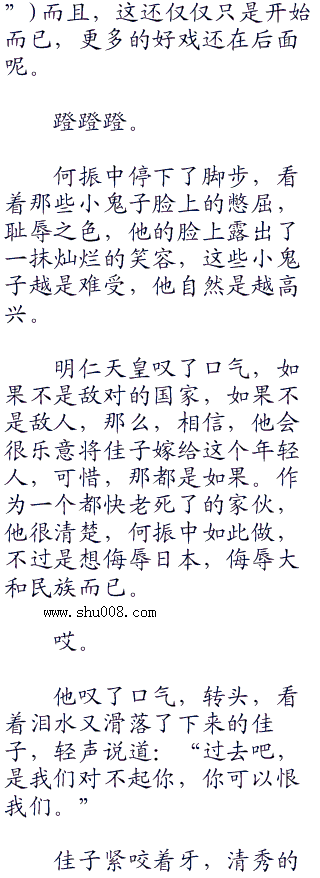 ”)而且，这还仅仅只是开始
而已，更多的好戏还在后面
呢。
蹬蹬蹬。
何振中停下了脚步，看
着那些小鬼子脸上的憋屈，
耻辱之色，他的脸上露出了
一抹灿烂的笑容，这些小鬼
子越是难受，他自然是越高
兴。
明仁天皇叹了口气，如
果不是敌对的国家，如果不
是敌人，那么，相信，他会
很乐意将佳子嫁给这个年轻
人，可惜，那都是如果。作
为一个都快老死了的家伙，
他很清楚，何振中如此做，
不过是想侮辱日本，侮辱大
和民族而已。
www.shu008.com
哎。
他叹了口气，转头，看
着泪水又滑落了下来的佳
子，轻声说道：“过去吧，
是我们对不起你，你可以恨
我们。”
佳子紧咬着牙，清秀的